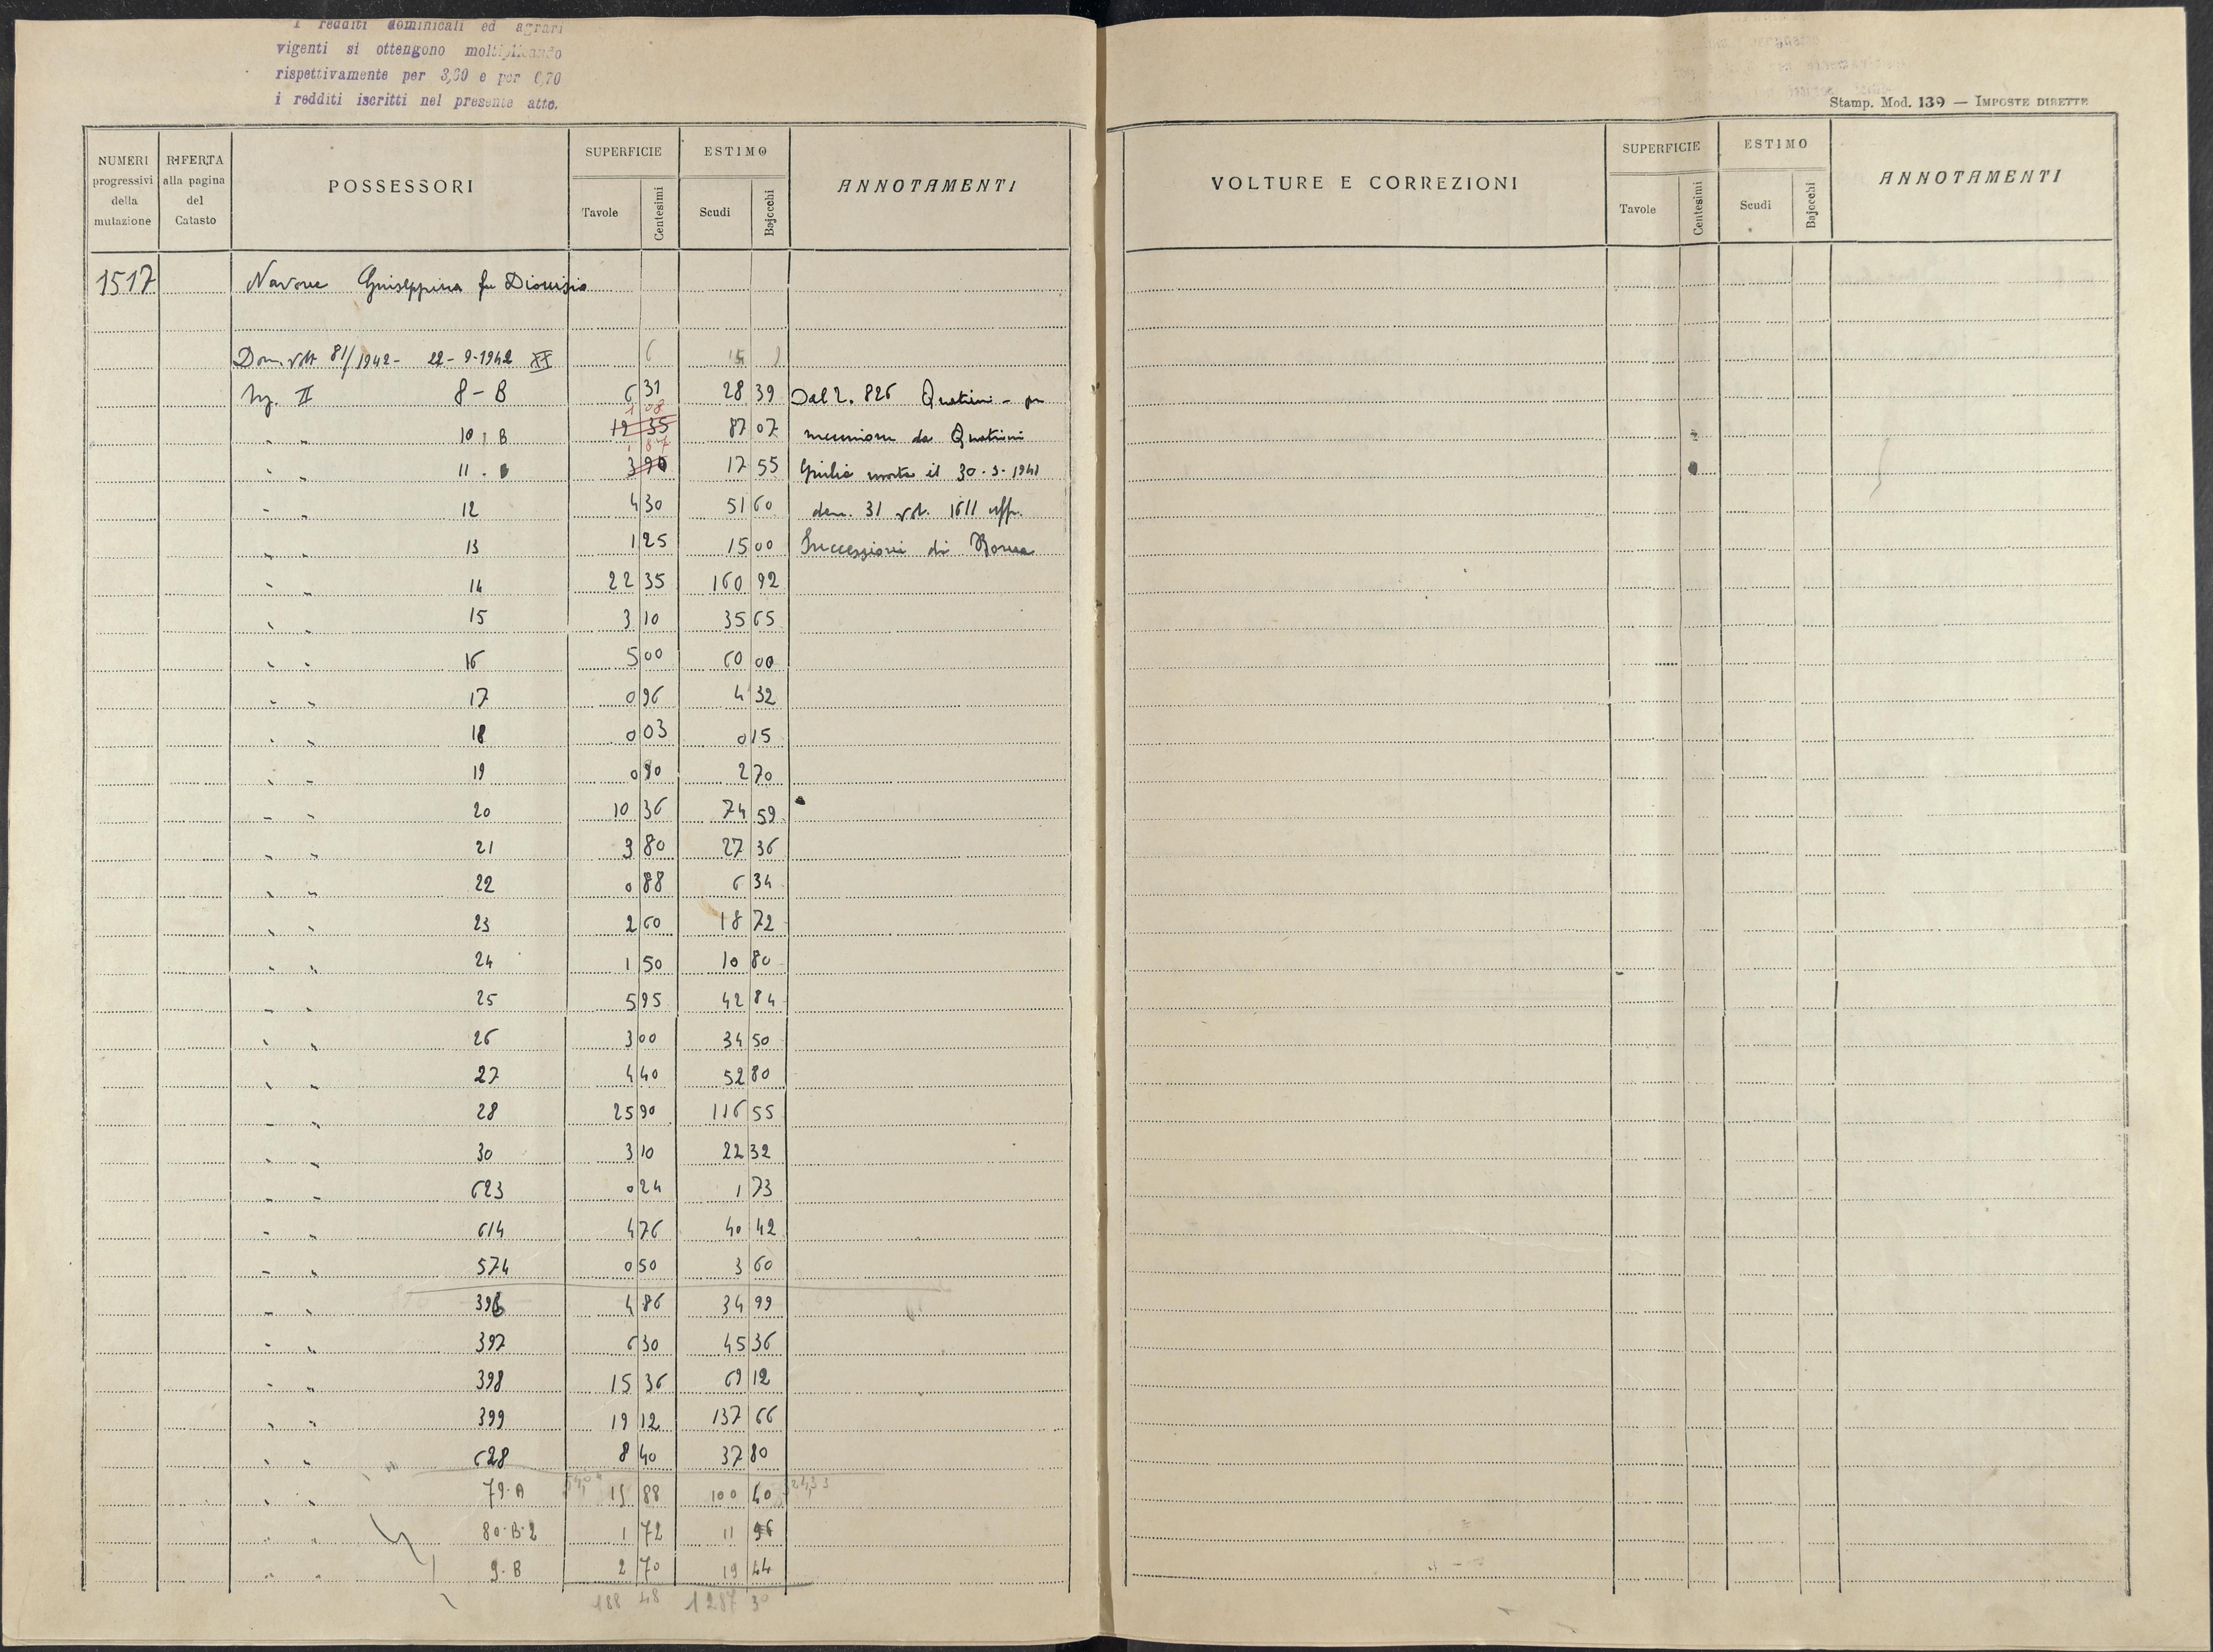 I redditi dominicali ed agrari
vigenti si ottengono moltiplicando
rispettivamente per 3,60 e per 6,70
i redditi iscritti nel presente atto.
Stamp. Mod. 139 — IMPOSTE DIRETTE
NUMERI progressivi della mutazione
RIFERTA alla pagina del Catasto
POSSESSORI
SUPERFICIE
Tavole Centesimi
ESTIMO
Scudi Bajocchi
ANNOTAMENTI
1517 Navone Giuseppina fu Dionisio
Dom. volt 81/1942 - 22-9-1942 XX
6 15
Sez. II 8-B 6 31 28 39 Dal 2. 826 Quatrini - per
1 08
10 . B 19 35 87 07 riunione da Quatrini
1 87
" " 11 . B 3 90 17 55 Giulia morta il 30-3-1941
" " 12 4 30 51 60 den. 31 vol. 1611 uff.
" " 13 1 25 15 00 Successioni di Roma
" " 14 22 35 160 92
" " 15 3 10 35 65
" " 16 5 00 60 00
" " 17 0 96 4 32
" " 18 0 03 0 15
" " 19 0 90 2 70
" " 20 10 36 74 59
" " 21 3 80 27 36
" " 22 0 88 6 34
" " 23 2 60 18 72
" " 24 1 50 10 80
" " 25 5 95 42 84
" " 26 3 00 34 50
" " 27 4 40 52 80
" " 28 25 90 116 55
" " 30 3 10 22 32
" " 623 0 24 1 73
" " 614 4 76 40 42
" " 574 0 50 3 60
" " 396 4 86 34 99
" " 397 6 30 45 36
" " 398 15 36 69 12
" " 399 19 12 137 66
" " 628 8 40 37 80
" " 79-A 15 88 100 40
" " 80-B-2 1 72 11 96
" " 9-B 2 70 19 44
188 48 1287 30
VOLTURE E CORREZIONI
SUPERFICIE
Tavole Centesimi
ESTIMO
Scudi Bajocchi
ANNOTAMENTI